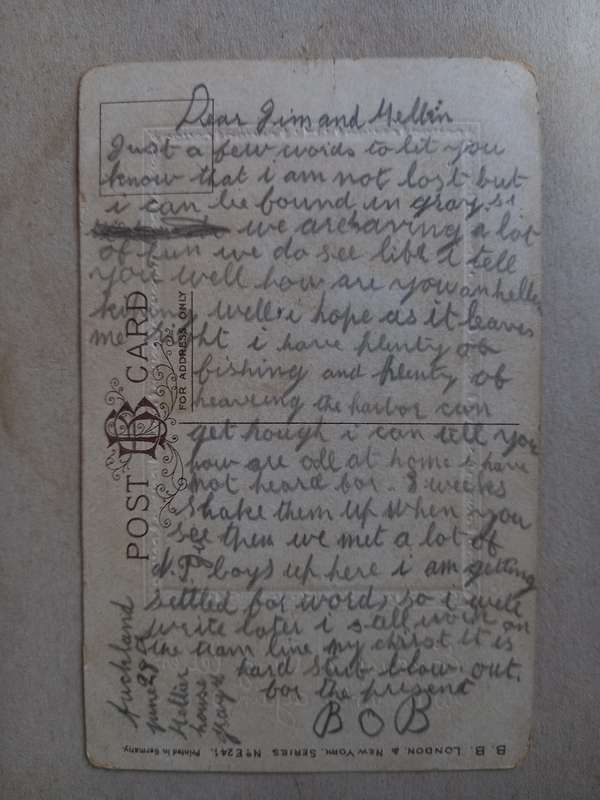 Dear Jim and Hellin
Just a few words to lit you
know that i am not lost but
i can be bound in gray. st
we are having a lot
of fun we do see life i tell
you well how are you an hellen
well i hope as it leaves
me i have plenty of
fishing and plenty of
the harbor can
get hough i can tell you
how are all at home i have
not heard for 3 weeks
shake them up when you
see them we met a lot of
boys up here i am getting
settled for words so i well
write later i stall work on
the tram line my christ it is
hard stub blow out.
for the present
BOB
Auckland
june 29th
house
grays
POST CARD
FOR ADDRESS ONLY
BB
B. B. LONDON, & NEW YORK. SERIES No E241. Printed in Germany.